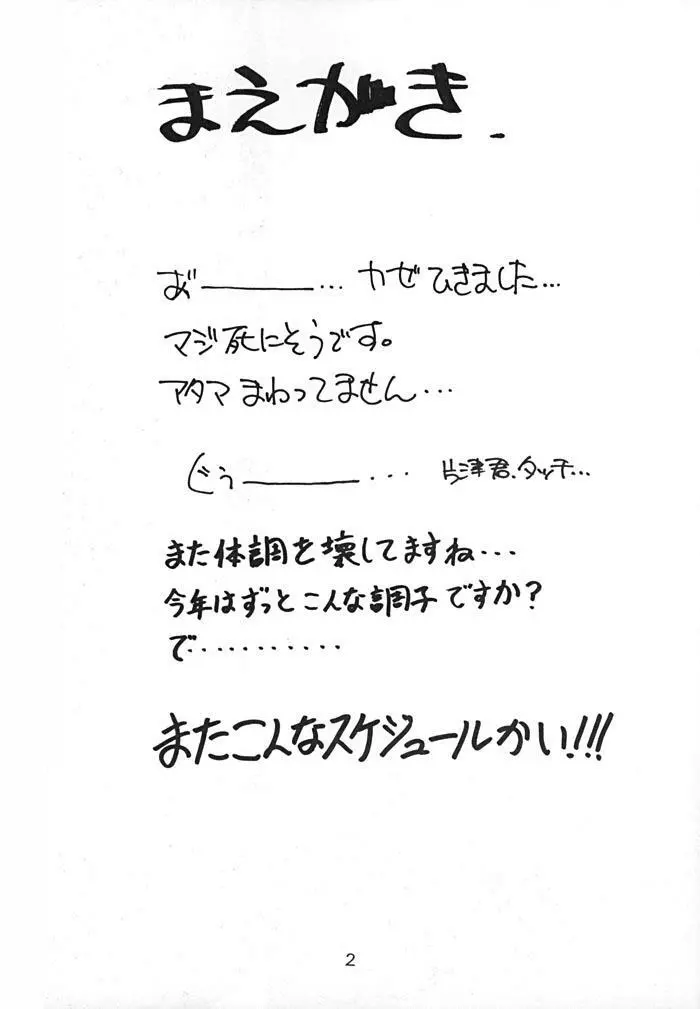 まえがき.
あ゛———... カゼひきました...
マジ死にそうです。
アタマまわってません...
ぐぅ———... 片津君、タッチ...
また体調を壊してますね...
今年はずっとこんな調子ですか?
で..........
またこんなスケジュールかい!!!
2